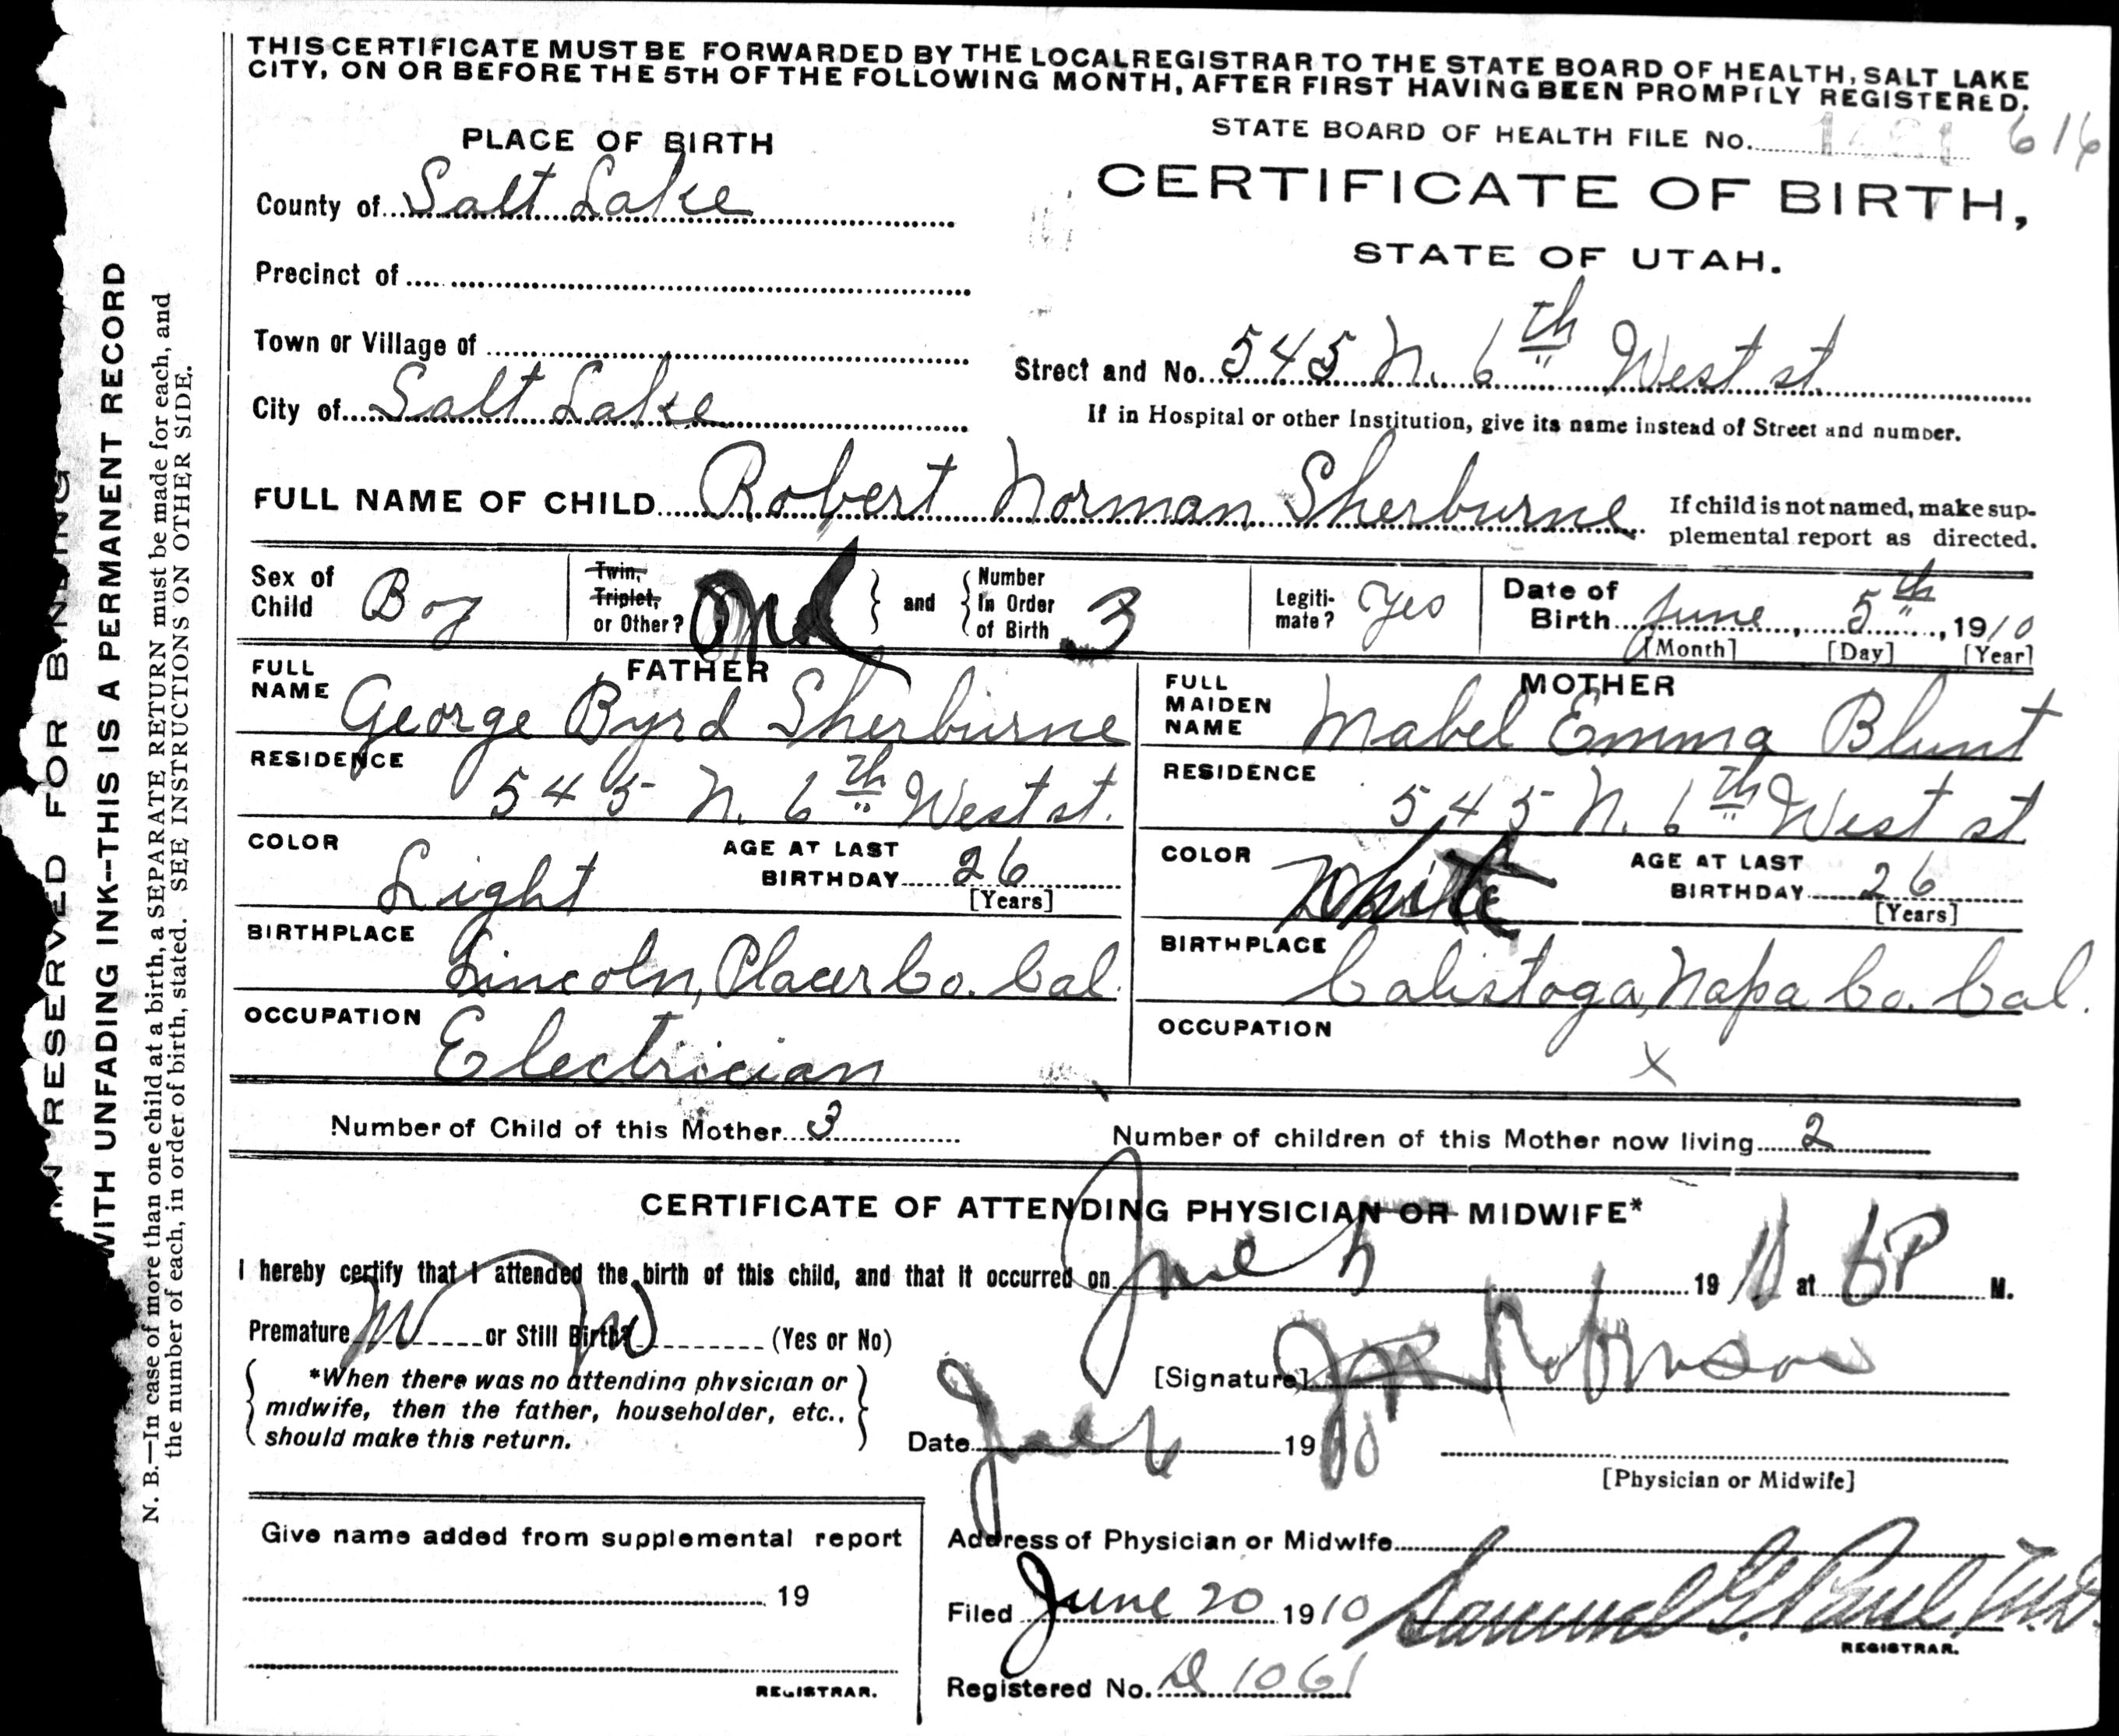 THIS CERTIFICATE MUST BE FORWARDED BY THE LOCAL REGISTRAR TO THE STATE BOARD OF HEALTH, SALT LAKE
CITY, ON OR BEFORE THE 5TH OF THE FOLLOWING MONTH, AFTER FIRST HAVING BEEN PROMPTLY REGISTERED.
STATE BOARD OF HEALTH FILE No. 616
PLACE OF BIRTH
CERTIFICATE OF BIRTH,
STATE OF UTAH.
County of Salt Lake
Precinct of
Town or Village of
City of Salt Lake
Street and No. 545 N. 6th West st.
If in Hospital or other Institution, give its name instead of Street and number.
FULL NAME OF CHILD Robert Norman Sherburne
If child is not named, make sup-
plemental report as directed.
Sex of Child Boy
Twin, Triplet, or Other? One
and Number In Order of Birth 3
Legiti-mate? Yes
Date of Birth June, 5th, 1910
[Month] [Day] [Year]
FATHER
FULL NAME George Byrd Sherburne
RESIDENCE 545 N. 6th West st.
COLOR Light
AGE AT LAST BIRTHDAY 26
[Years]
BIRTHPLACE Lincoln, Placer Co. Cal.
OCCUPATION Electrician
MOTHER
FULL MAIDEN NAME Mabel Emma Blunt
RESIDENCE 545 N. 6th West st
COLOR White
AGE AT LAST BIRTHDAY 26
[Years]
BIRTHPLACE Calistoga, Napa Co. Cal.
OCCUPATION X
Number of Child of this Mother 3
Number of children of this Mother now living 2
CERTIFICATE OF ATTENDING PHYSICIAN OR MIDWIFE*
I hereby certify that I attended the birth of this child, and that it occurred on June 5 19 at 6 P M.
Premature or Still Birth? (Yes or No)
[Signature] Robinson
*When there was no attending physician or
midwife, then the father, householder, etc.,
should make this return.
Date June 19
[Physician or Midwife]
Give name added from supplemental report
19
REGISTRAR.
Address of Physician or Midwife
Filed June 20 1910 Samuel G. Paul, M.D.
REGISTRAR.
Registered No. 1061
RESERVED FOR BINDING
WITH UNFADING INK--THIS IS A PERMANENT RECORD
N. B.—In case of more than one child at a birth, a SEPARATE RETURN must be made for each, and
the number of each, in order of birth, stated. SEE INSTRUCTIONS ON OTHER SIDE.